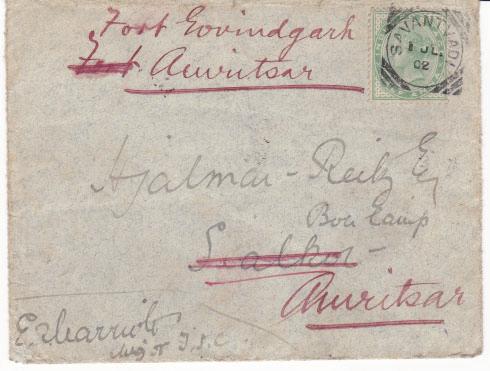 Fort Govindgarh
Fort Amritsar
SAVANTVADI
1 JL
02
Hjalmar Reitz Esq
Boer Camp
Sialkot
Amritsar
Major I.S.C.